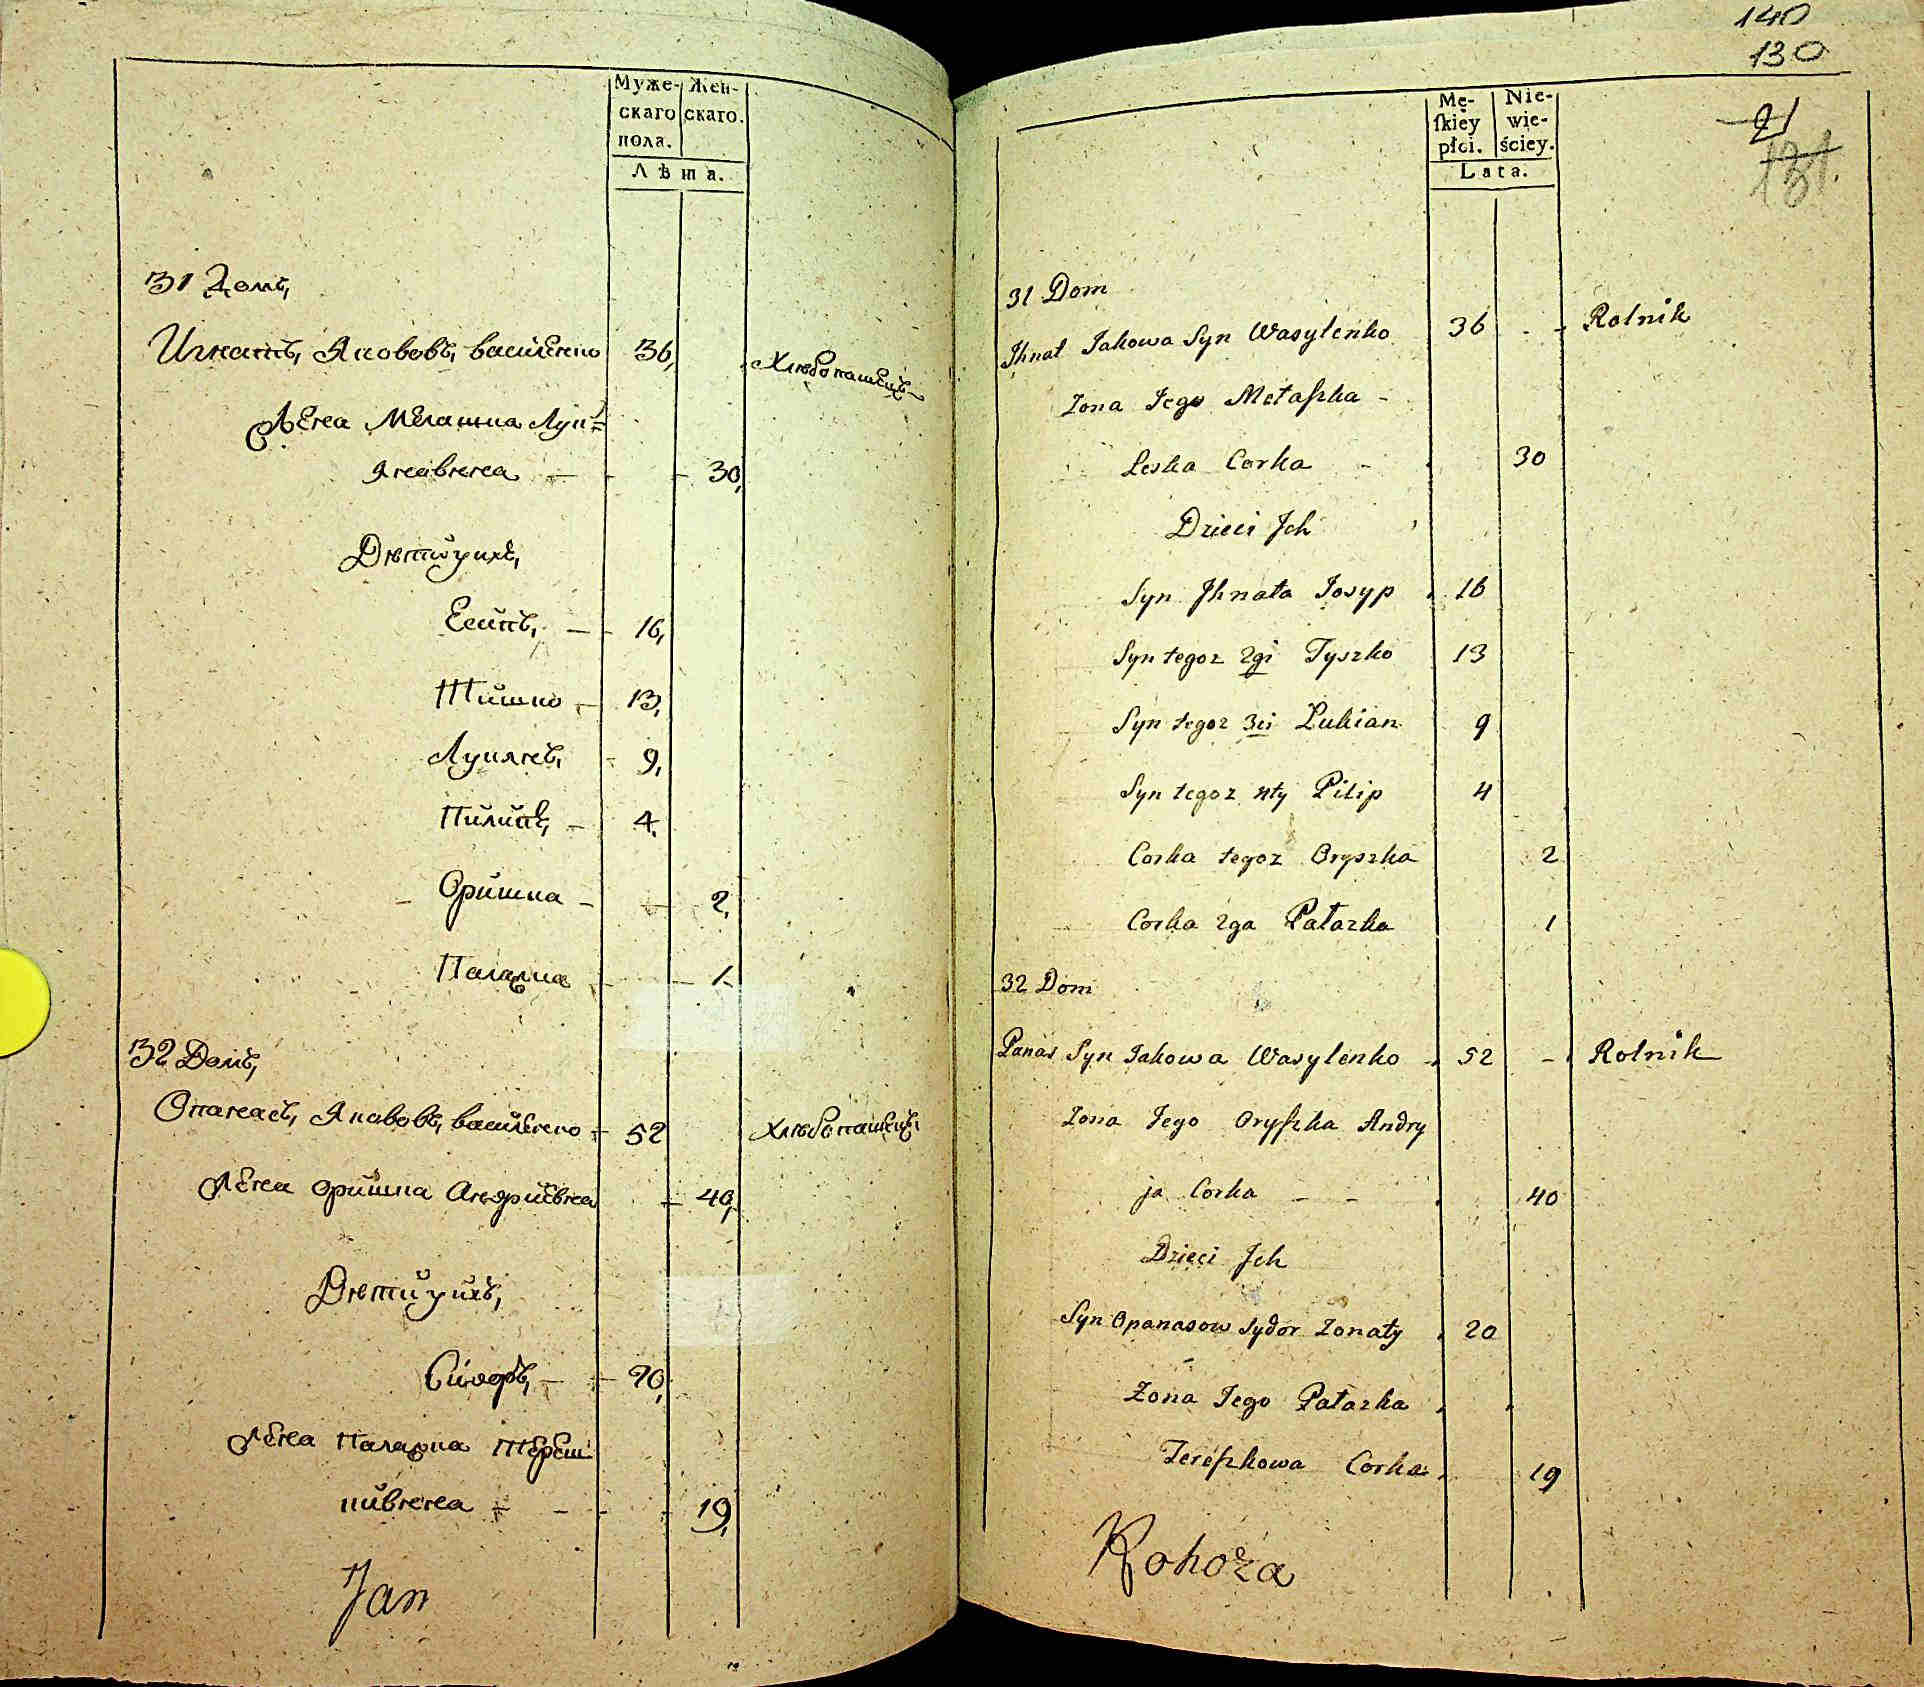 Муже-
скаго
пола.
Жен-
скаго.
Лѣта.
31 Домъ,
Игнатъ, Якововъ, василенко 36, Хлѣбопашецъ
Жена Меланка Лук=
яновнена — 30,
Дѣти ихъ,
Есипъ, — 16,
Тишко — 13,
Лукянъ, 9,
Пилипъ, — 4,
Оришка — 2,
Палажка — 1
32 Домъ,
Опанасъ, Якововъ, василенко 52 Хлѣбопашецъ
Жена оришка Андриевна 40,
Дѣти ихъ,
Сидоръ, — 20,
Жена Палажка Тереш
кивнена — 19,
Jan
140
130
21
131.
Mę-
ſkiey
płci.
Nie-
wie-
ściey.
Lata.
31 Dom
Jhnat Jakowa Syn Wasylenko 36 Rolnik
Zona Jego Metaſzka
Leska Corka 30
Dzieci Jch
Syn Jhnata Josyp 16
Syn tegoz 2gi Tyszko 13
Syn tegoz 3ci Łukian 9
Syn tegoz 4ty Pilip 4
Corka tegoz Oryszka 2
Corka 2ga Pałazka 1
32 Dom
Panas Syn Jakowa Wasylenko 52 Rolnik
Zona Jego Oryſzka Andry
ja Corka 40
Dzieci Jch
Syn Opanasow Sydor Zonaty 20
Zona Jego Pałazka
Tereſzkowa Corka 19
Kohoza